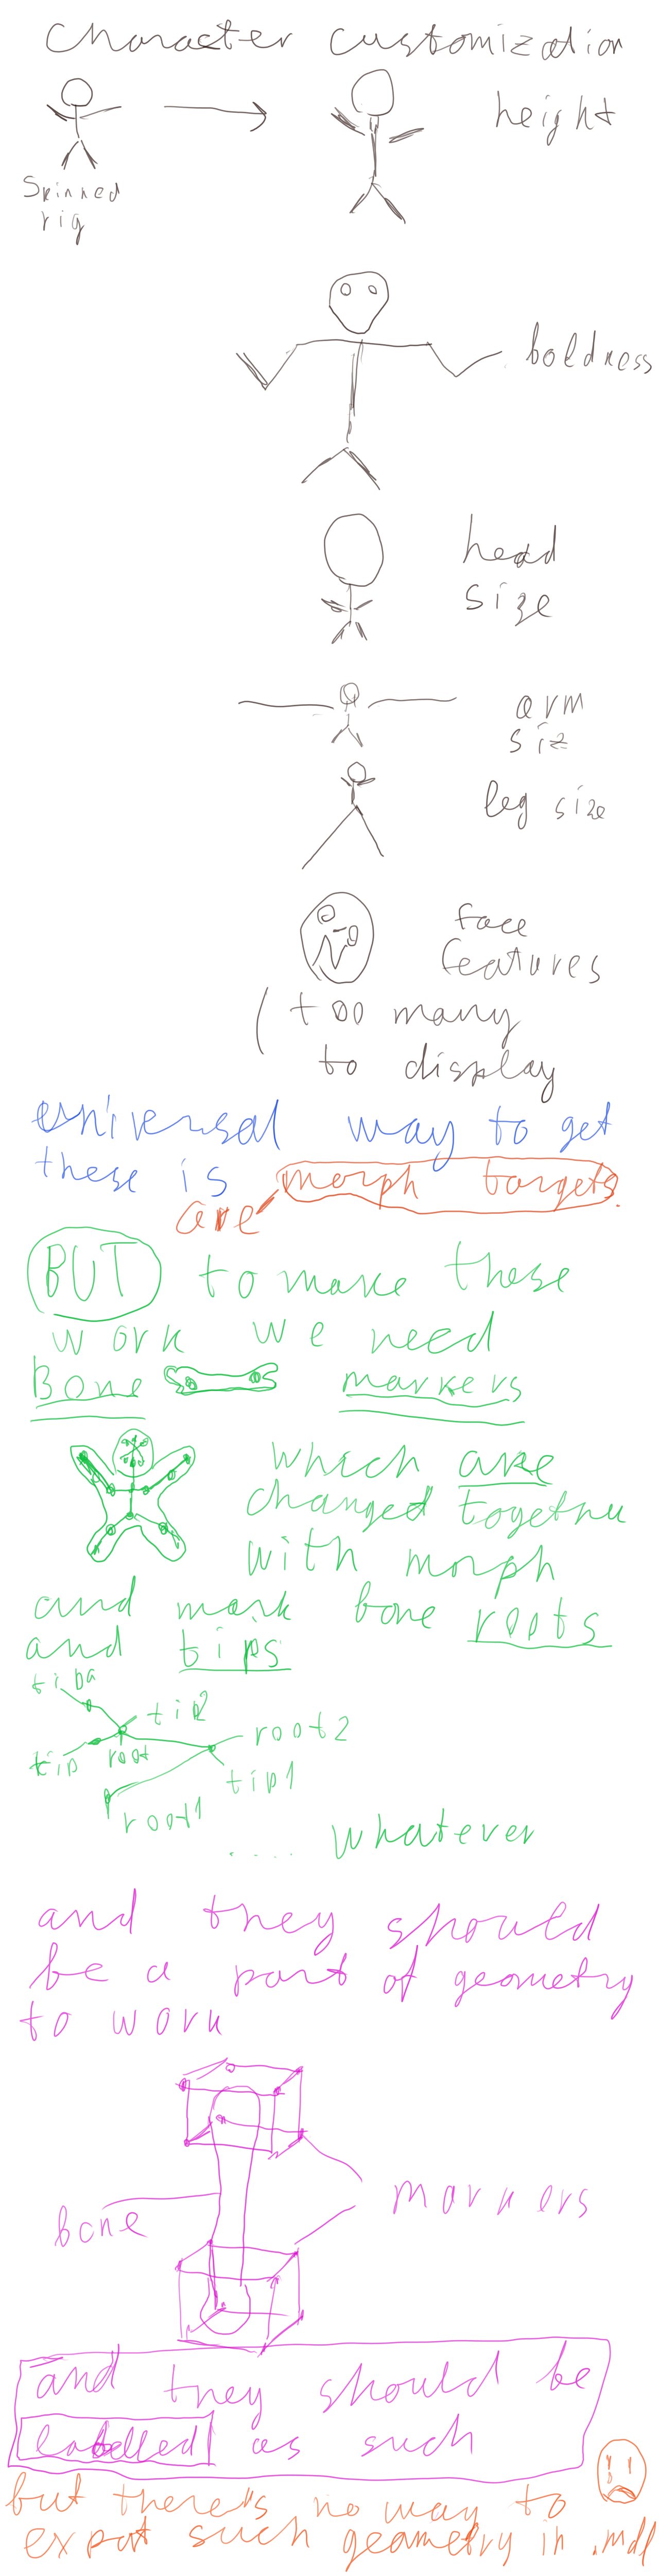 Character customization
height
Skinned
rig
boldness
head
size
arm
siz
leg size
face
features
(too many
to display
universal way to get
these is morph targets.
are
BUT to make these
work we need
Bone markers
which are
changed together
with morph
and mark bone roots
and tips
tip2
root2
tip root
tip1
root1
.... whatever
and they should
be a part of geometry
to work
markers
bone
and they should be
labelled as such
but there's no way to
export such geometry in .mdl